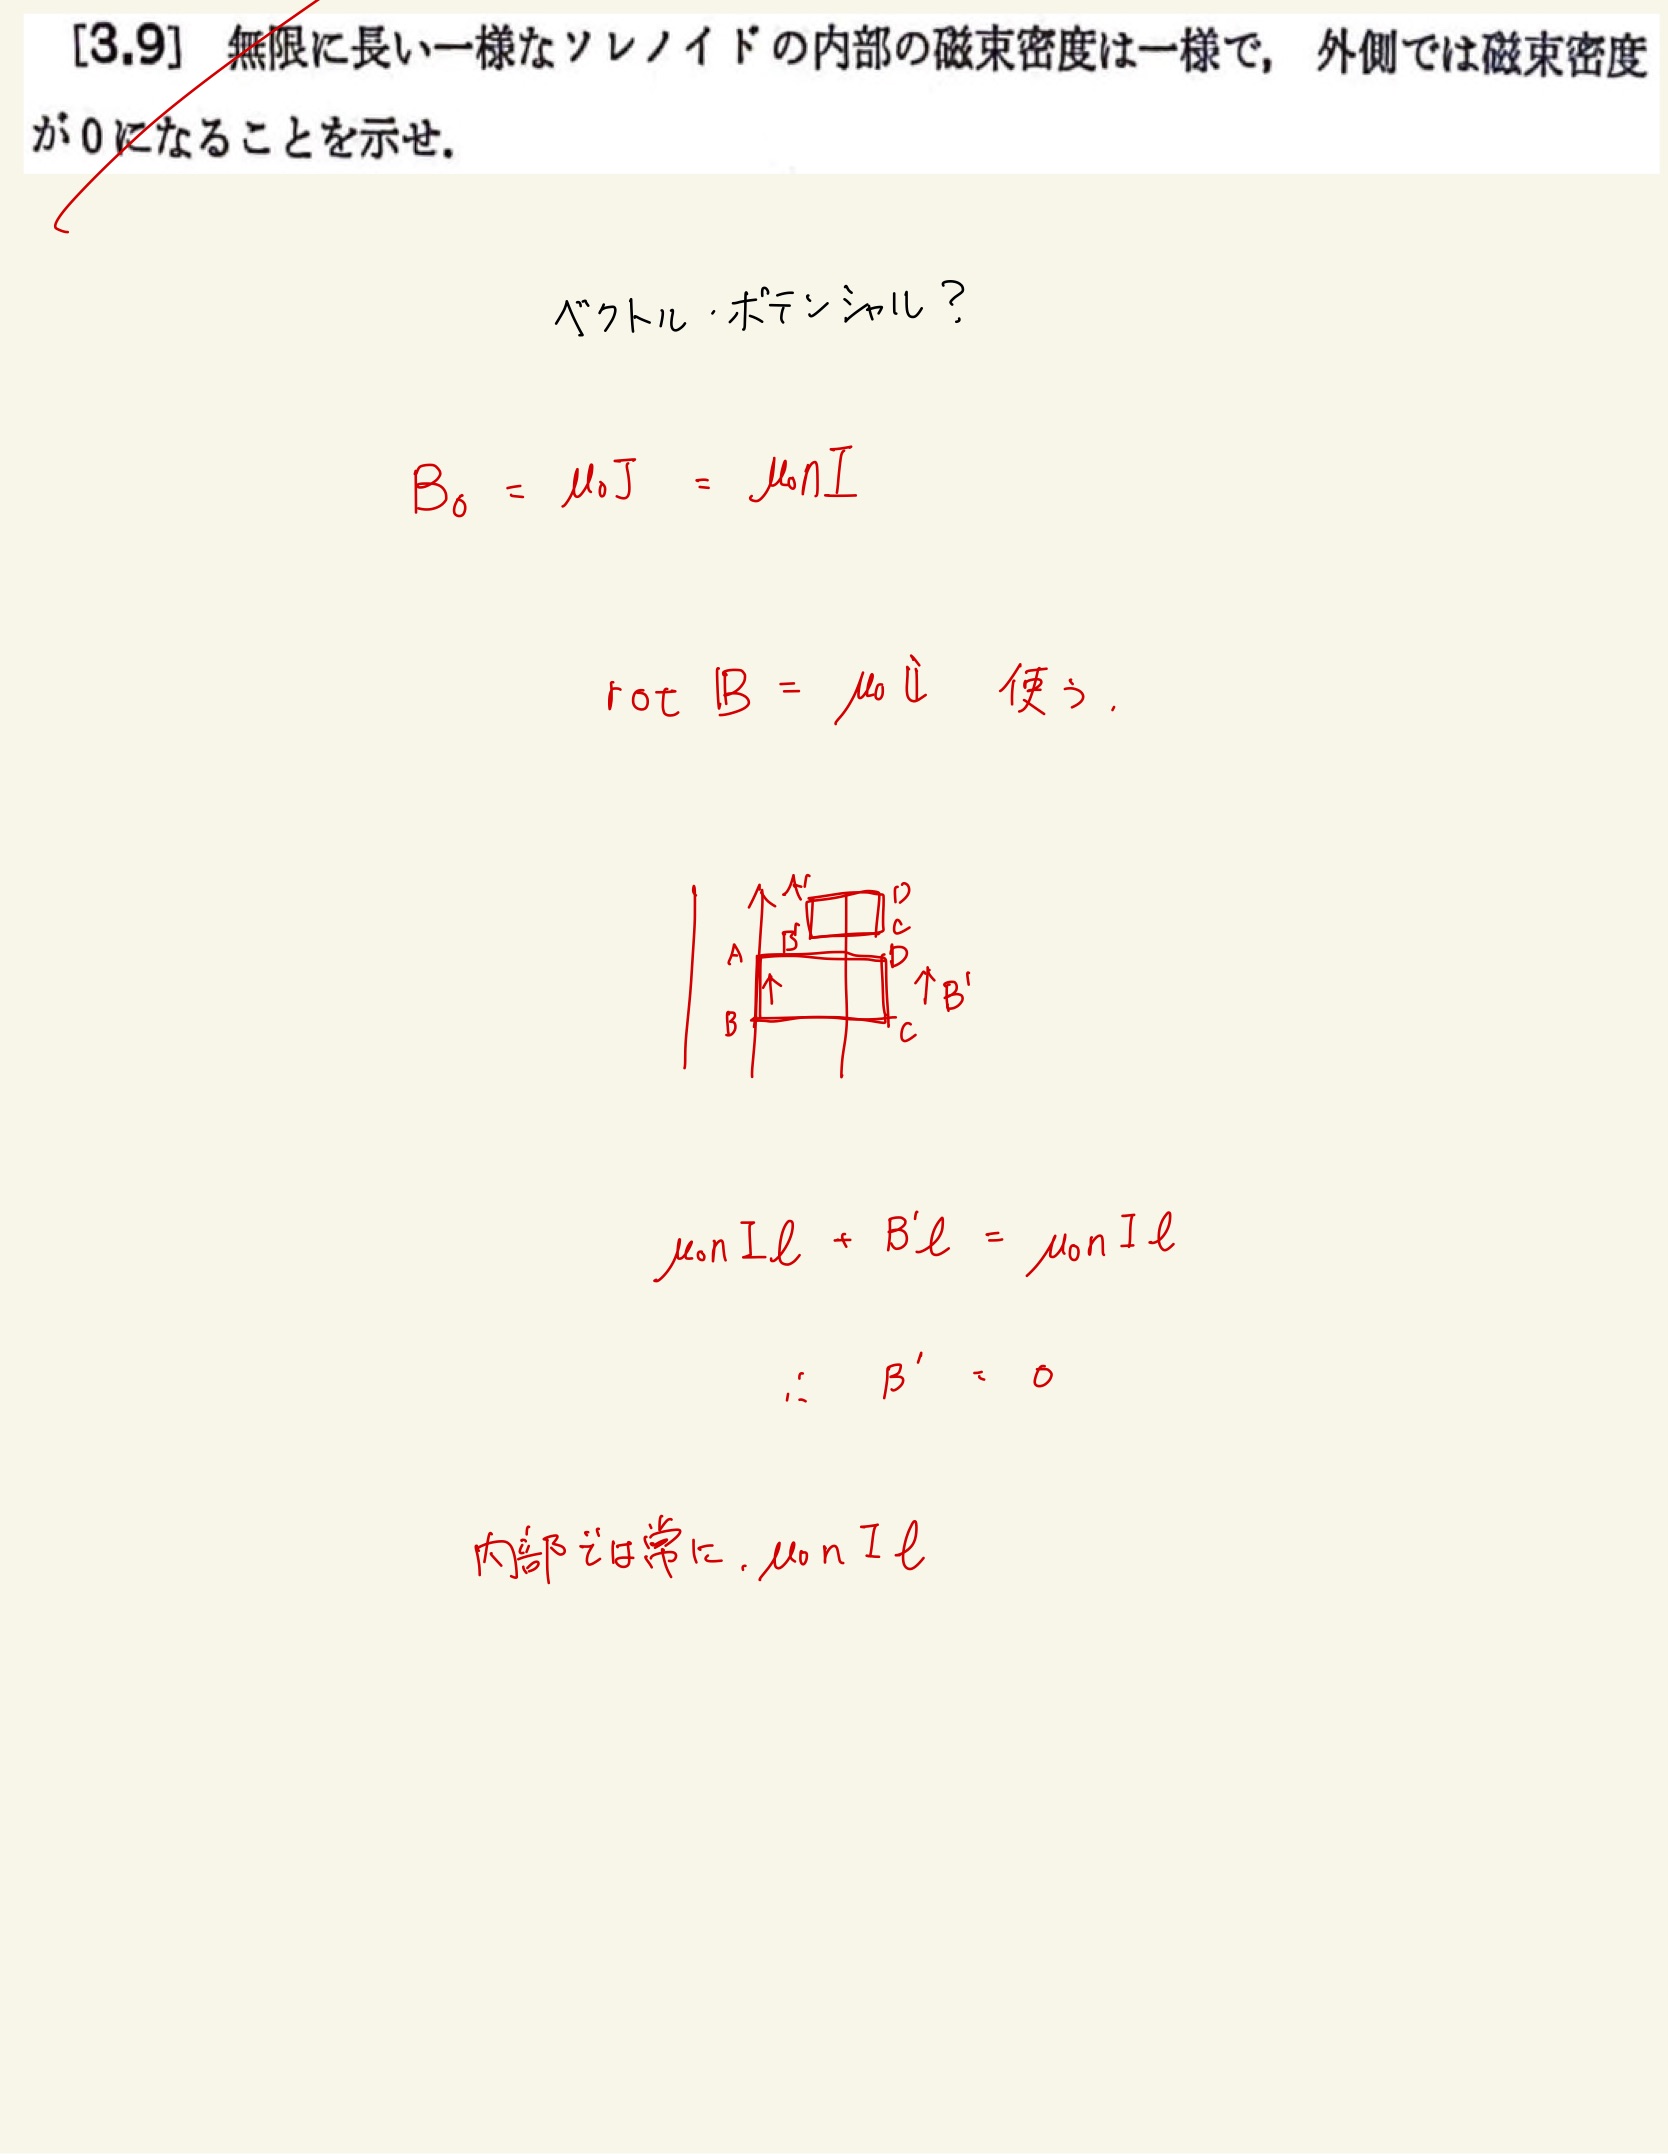 [3.9] 無限に長い一様なソレノイドの内部の磁束密度は一様で, 外側では磁束密度
が0になることを示せ.
ベクトル・ポテンシャル?
B₀ = μ₀J = μ₀nI
rot 𝔹 = μ₀ 𝕚 使う.
A' D
B' C
A D
B C
↑B'
μ₀nIℓ + B'ℓ = μ₀nIℓ
∴ B' = 0
内部では常に. μ₀nIℓ